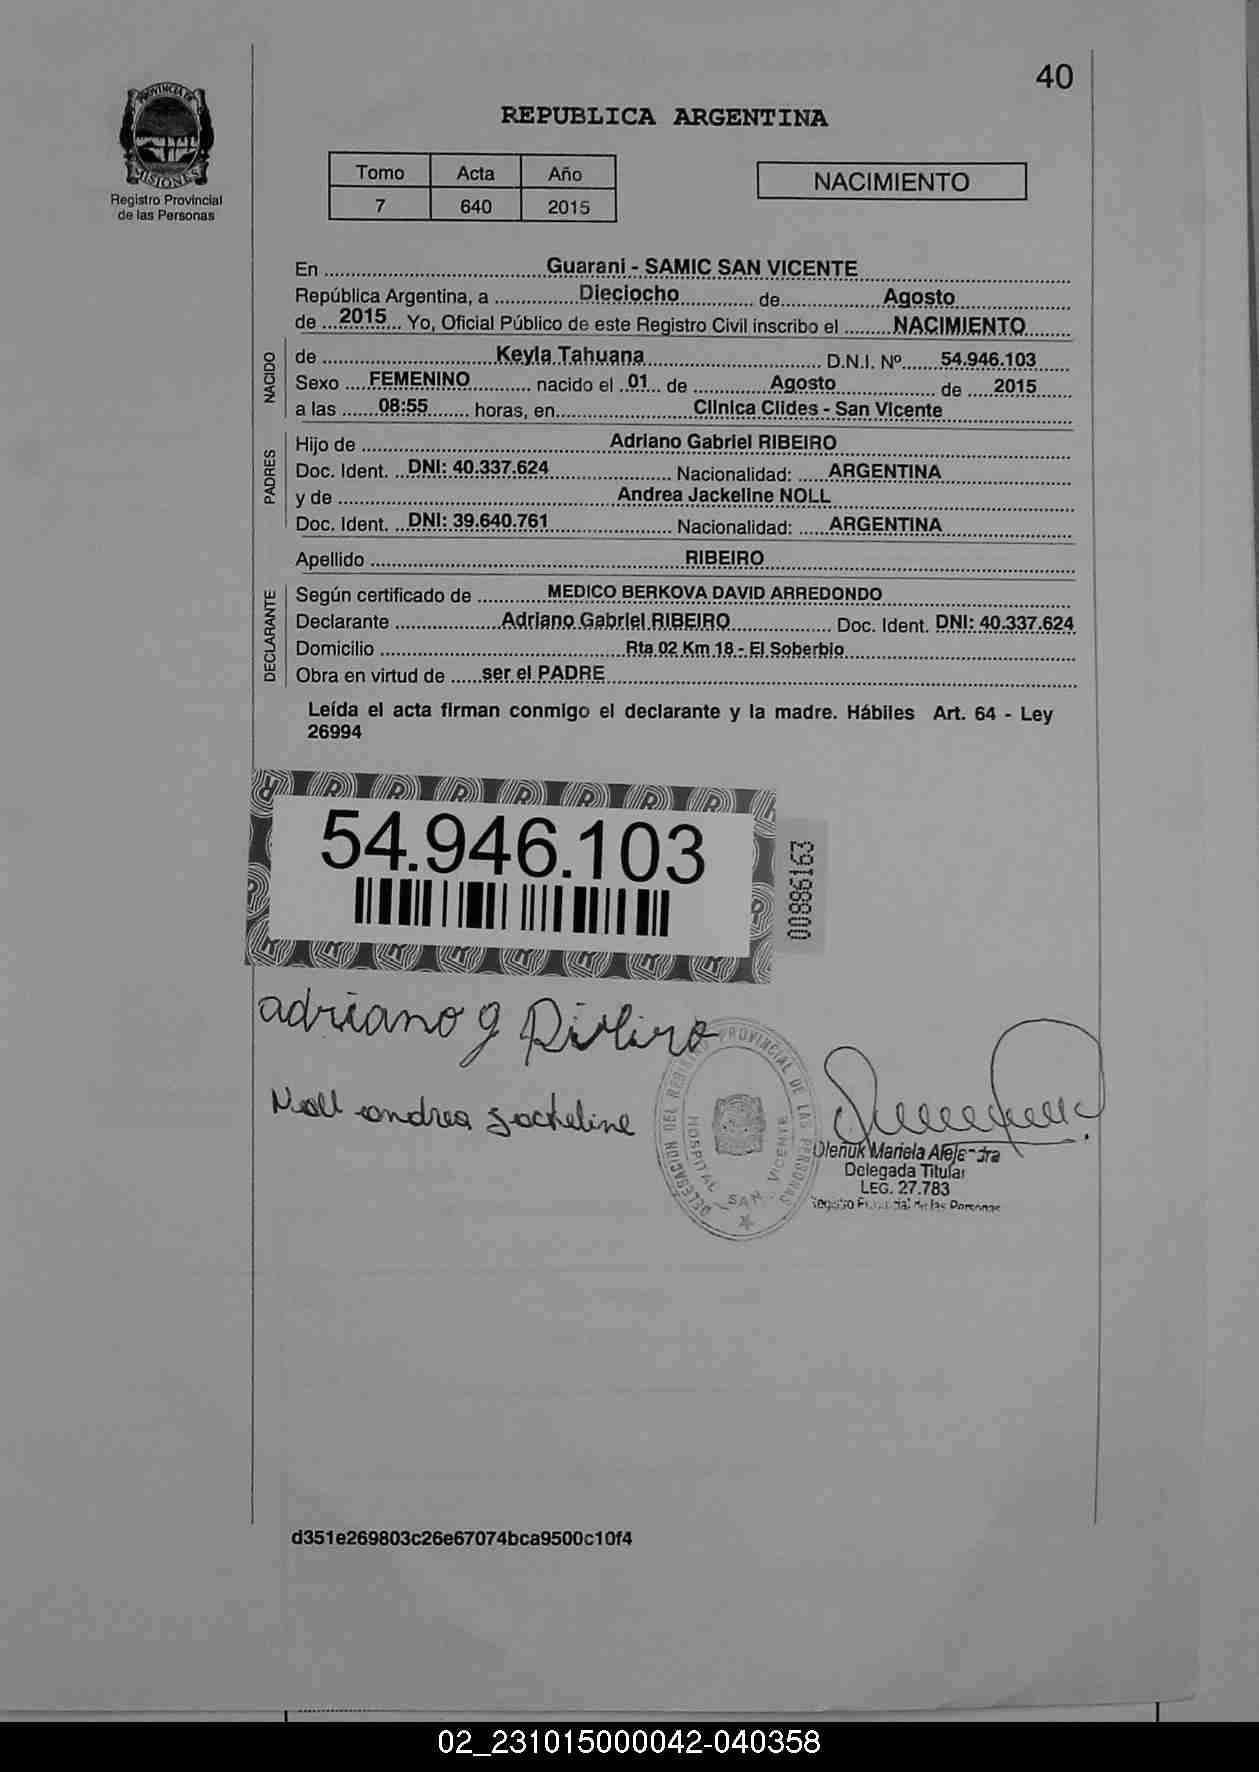 40
PROVINCIA DE
MISIONES
Registro Provincial
de las Personas
REPUBLICA ARGENTINA
Tomo Acta Año
7 640 2015
NACIMIENTO
En Guarani - SAMIC SAN VICENTE
República Argentina, a Dieciocho de Agosto
de 2015 Yo, Oficial Público de este Registro Civil inscribo el NACIMIENTO
NACIDO
de Keyla Tahuana D.N.I. Nº 54.946.103
Sexo FEMENINO nacido el 01 de Agosto de 2015
a las 08:55 horas, en Clinica Clides - San Vicente
PADRES
Hijo de Adriano Gabriel RIBEIRO
Doc. Ident. DNI: 40.337.624 Nacionalidad: ARGENTINA
y de Andrea Jackeline NOLL
Doc. Ident. DNI: 39.640.761 Nacionalidad: ARGENTINA
Apellido RIBEIRO
DECLARANTE
Según certificado de MEDICO BERKOVA DAVID ARREDONDO
Declarante Adriano Gabriel RIBEIRO Doc. Ident. DNI: 40.337.624
Domicilio Rta 02 Km 18 - El Soberbio
Obra en virtud de ser el PADRE
Leída el acta firman conmigo el declarante y la madre. Hábiles Art. 64 - Ley
26994
54.946.103
00886163
adriano g Ribiro
Noll andrea Jackeline
DELEGACION DEL REGISTRO PROVINCIAL DE LAS PERSONAS
HOSPITAL SAN VICENTE
Oleñuk Mariela Alejandra
Delegada Titular
LEG. 27.783
Registro Provincial de las Personas
d351e269803c26e67074bca9500c10f4
02_231015000042-040358